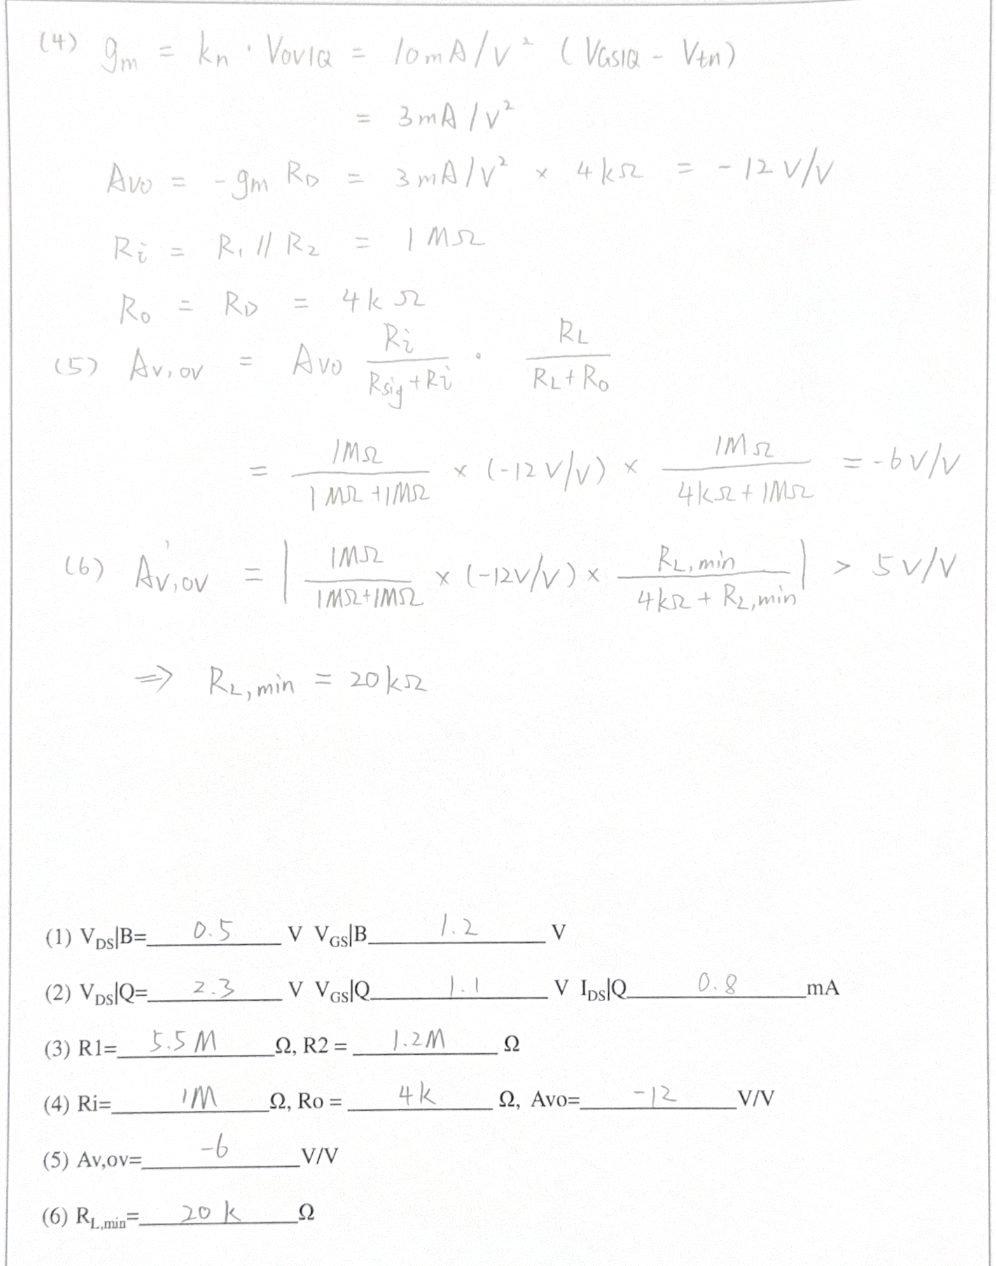 (4) gm = kn · VOV1Q = 10mA/V² (VGS1Q - Vtn)
= 3mA/V²
Avo = -gm RD = 3mA/V² × 4kΩ = -12 V/V
Ri = R1 // R2 = 1MΩ
Ro = RD = 4kΩ
(5) Av,ov = Avo Ri/(Rsig+Ri) · RL/(RL+Ro)
= 1MΩ/(1MΩ+1MΩ) × (-12V/V) × 1MΩ/(4kΩ+1MΩ) = -6V/V
(6) A'v,ov = | 1MΩ/(1MΩ+1MΩ) × (-12V/V) × RL,min/(4kΩ + RL,min) | > 5V/V
⇒ RL,min = 20kΩ
(1) VDS|B= 0.5 V VGS|B 1.2 V
(2) VDS|Q= 2.3 V VGS|Q 1.1 V IDS|Q 0.8 mA
(3) R1= 5.5M Ω, R2 = 1.2M Ω
(4) Ri= 1M Ω, Ro = 4k Ω, Avo= -12 V/V
(5) Av,ov= -6 V/V
(6) RL,min= 20k Ω